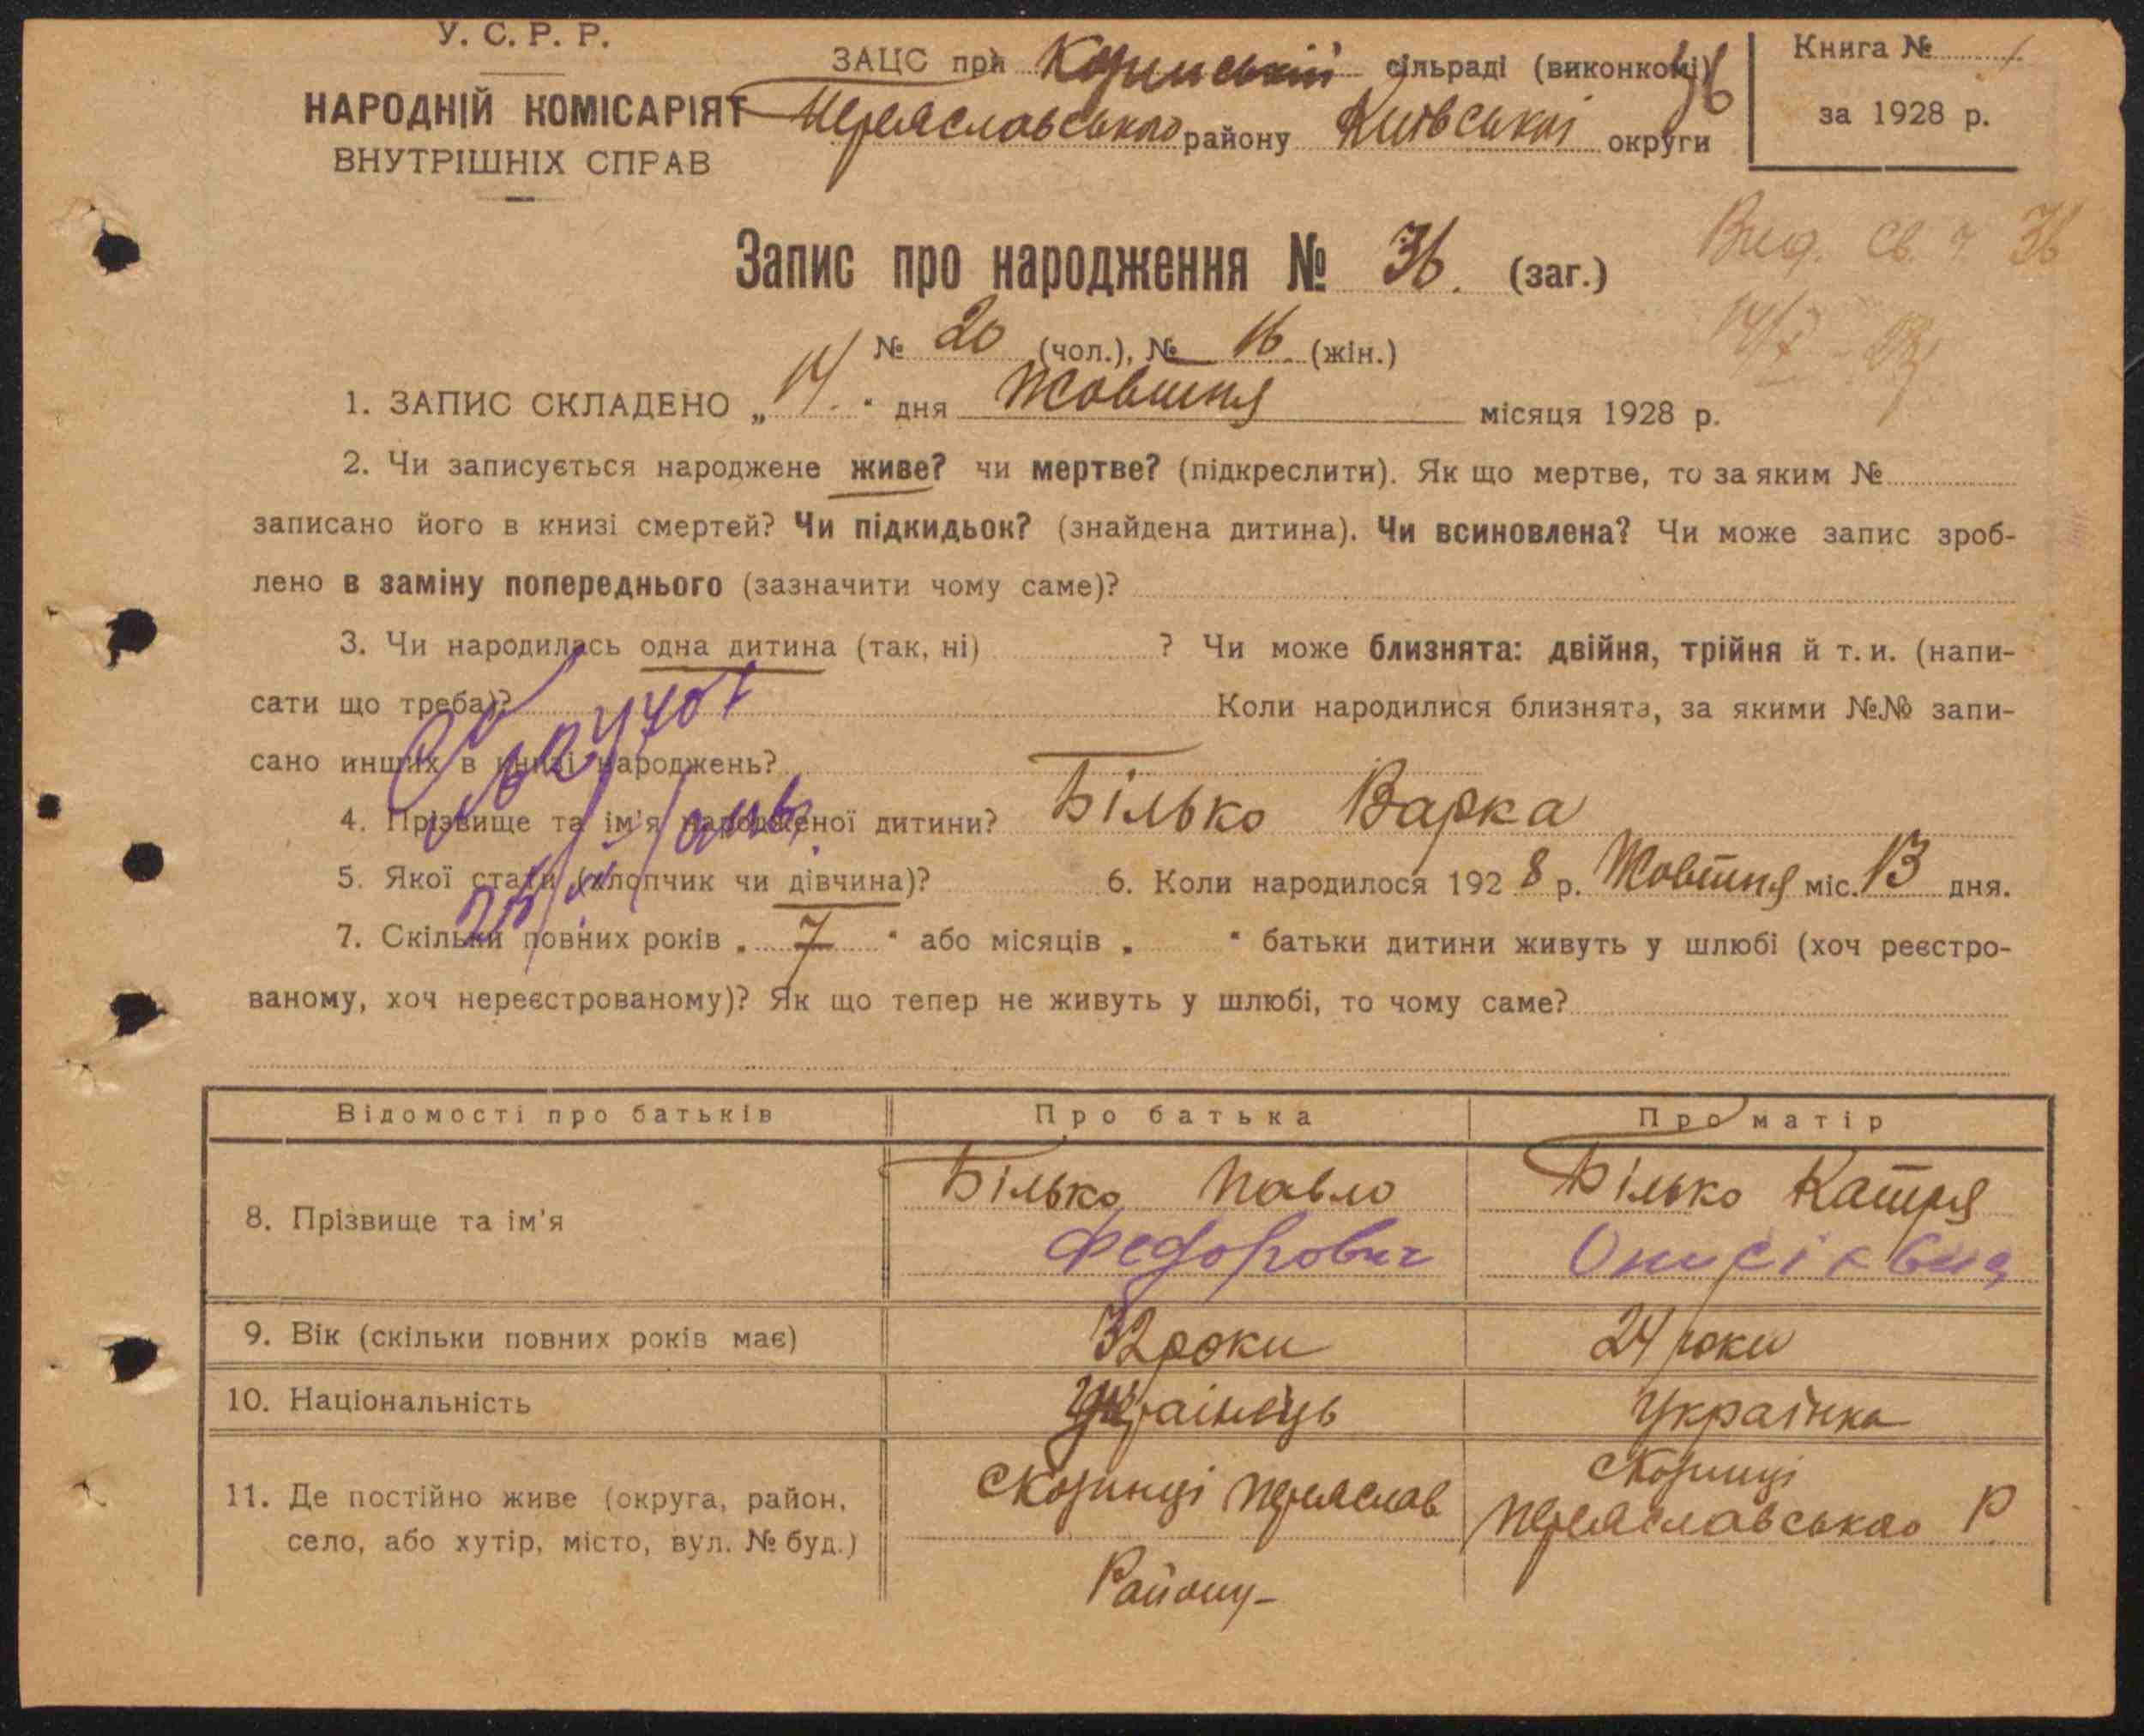 У. С. Р. Р.
НАРОДНІЙ КОМІСАРІЯТ
ВНУТРІШНІХ СПРАВ
ЗАЦС при сільраді (виконкомі)
Переяславського району Київської округи
Книга №
за 1928 р.
Запис про народження № 36. (заг.)
Вид. св. ч. 36
№ 20 (чол.), № 16. (жін.)
1. ЗАПИС СКЛАДЕНО „ 14 " дня Жовтня місяця 1928 р.
2. Чи записується народжене живе? чи мертве? (підкреслити). Як що мертве, то за яким №
записано його в книзі смертей? Чи підкидьок? (знайдена дитина). Чи всиновлена? Чи може запис зроб-
лено в заміну попереднього (зазначити чому саме)?
3. Чи народилась одна дитина (так, ні) ? Чи може близнята: двійня, трійня й т. и. (напи-
сати що треба)? Коли народилися близнята, за якими №№ запи-
сано инших в книзі народжень?
4. Прізвище та ім'я народженої дитини? Білько Варка
5. Якої стати (хлопчик чи дівчина)? 6. Коли народилося 192 8 р. Жовтня міс. 13 дня.
7. Скільки повних років „ 7 " або місяців „ " батьки дитини живуть у шлюбі (хоч реєстро-
ваному, хоч нереєстрованому)? Як що тепер не живуть у шлюбі, то чому саме?
Відомості про батьків Про батька Про матір
8. Прізвище та ім'я
Білько Павло
Федорович
Білько Катря
9. Вік (скільки повних років має) 32 роки 24 роки
10. Національність Українець Українка
11. Де постійно живе (округа, район,
село, або хутір, місто, вул. № буд.)
Скопинці Переяслав
Району
Скопинці
Переяславського Р.